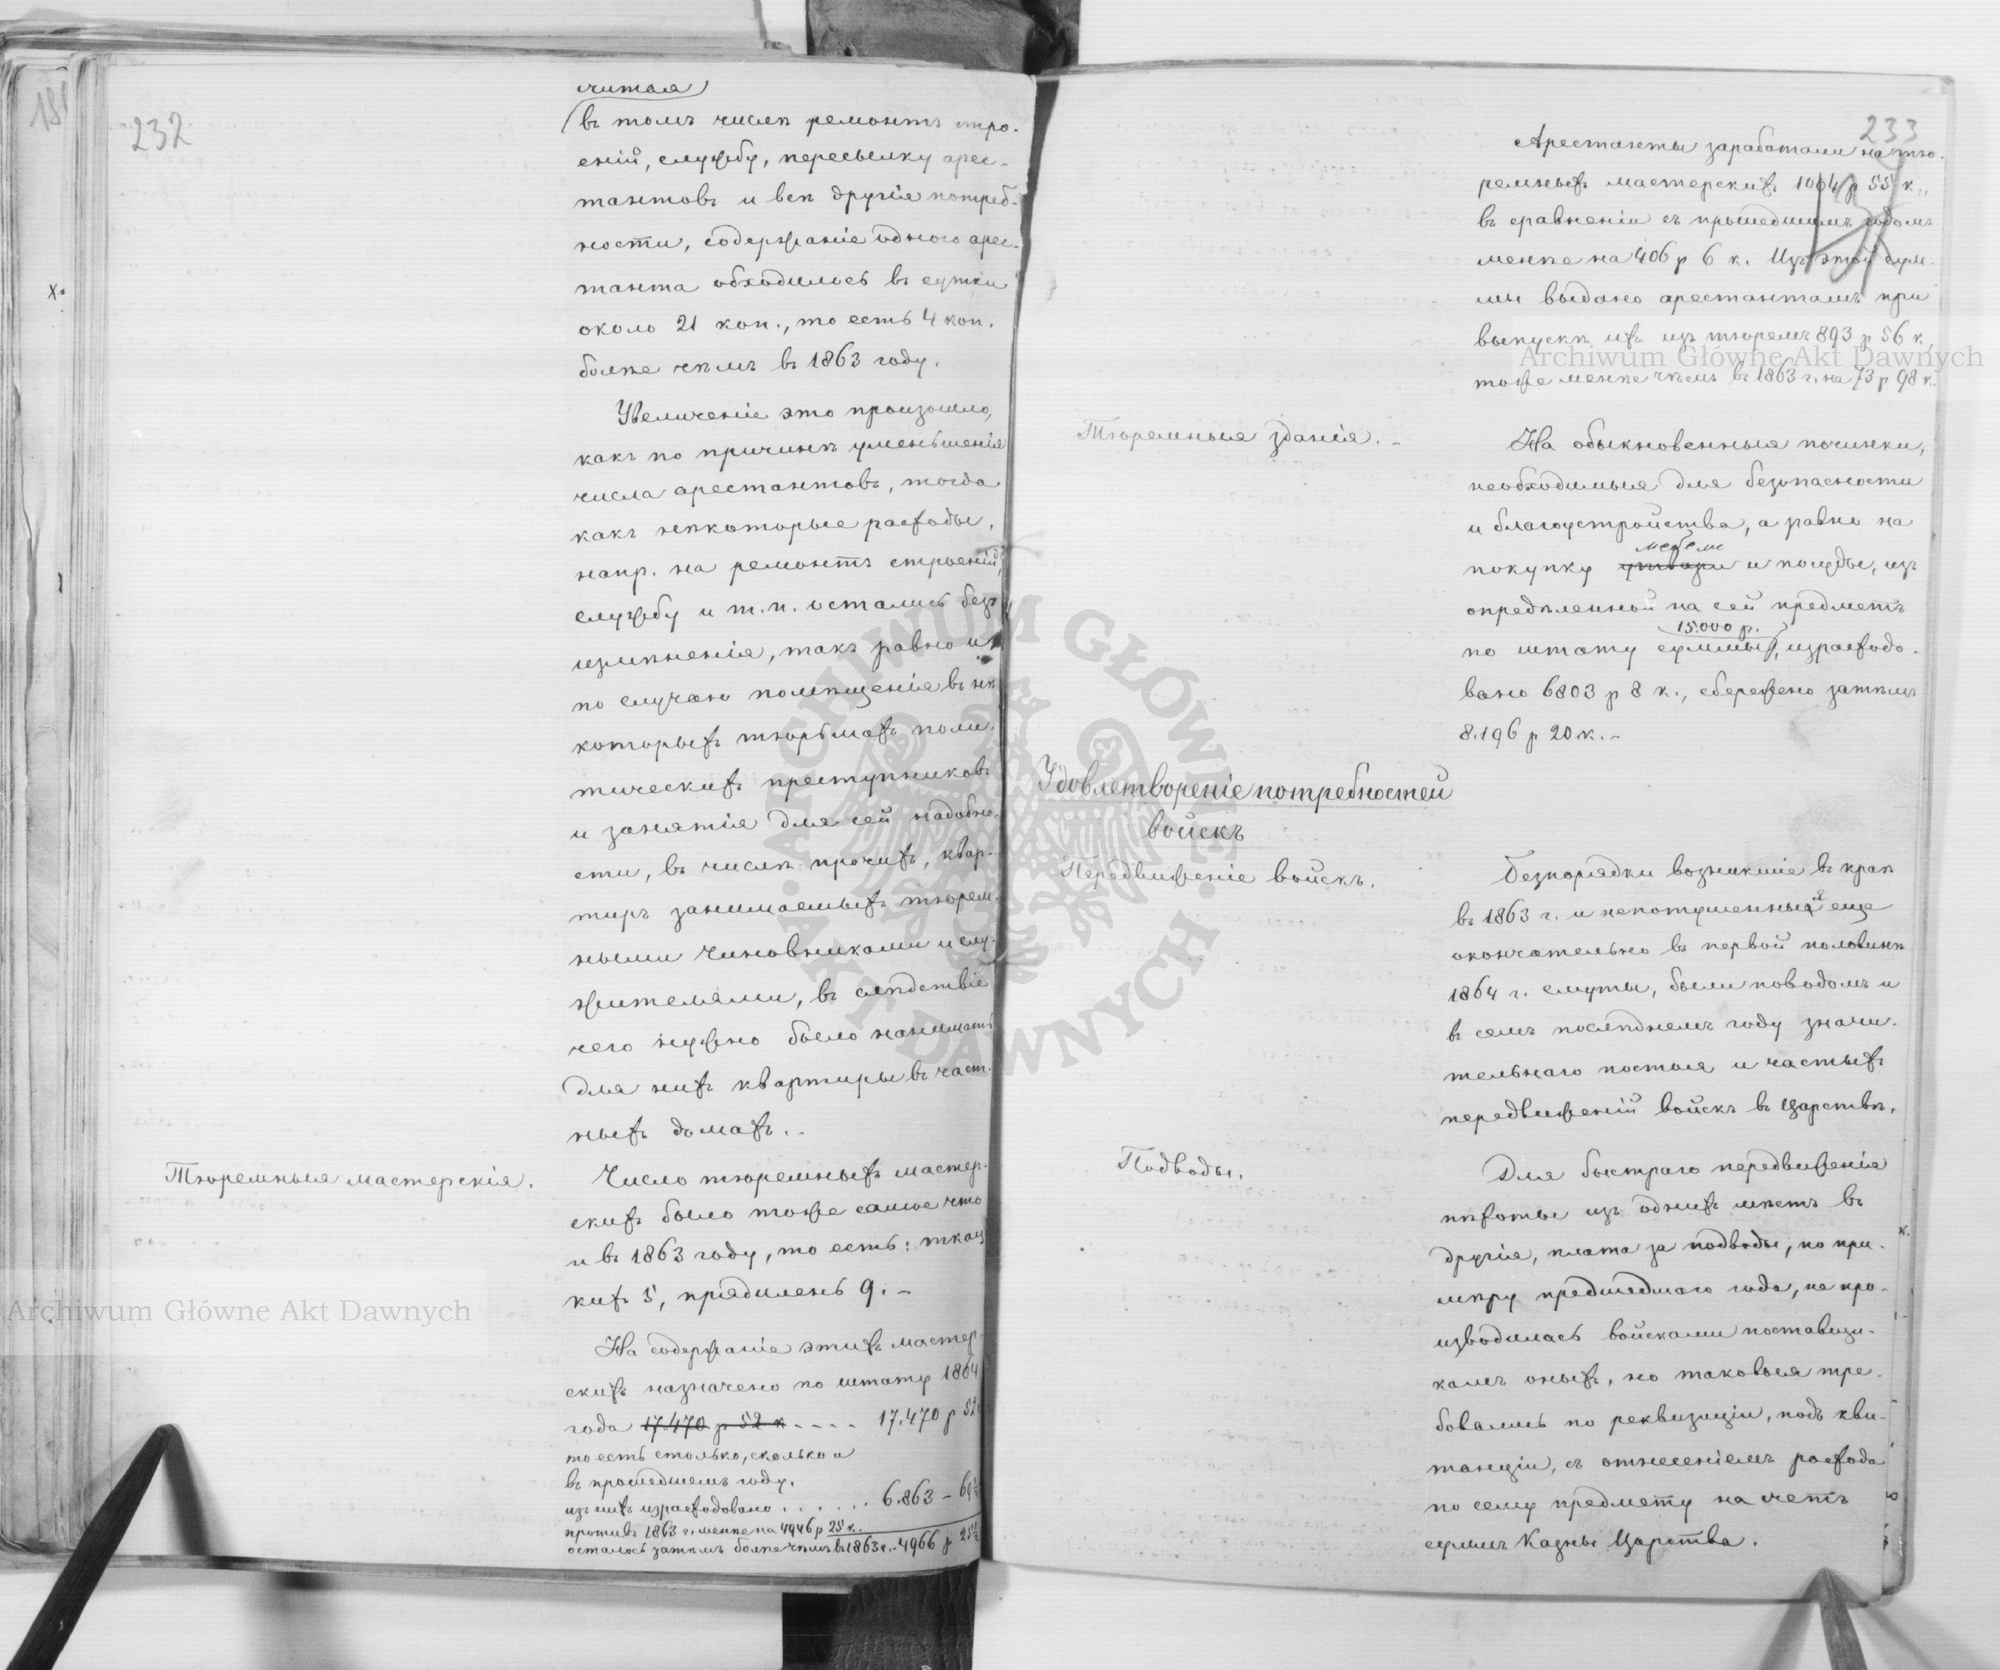 232
считая
въ томъ числѣ ремонтъ стро-
еній, службу, пересылку арес-
тантовъ и всѣ другіе потреб-
ности, содержаніе одного арес-
танта обходилось въ сутки
около 21 коп., то есть 4 коп.
болѣе чѣмъ въ 1863 году.
Увеличеніе это произошло,
какъ по причинѣ уменьшенія
числа арестантовъ, тогда
какъ нѣкоторые расходы,
напр. на ремонтъ строеній,
службу и т. п. остались безъ
измѣненія, такъ равно и
по случаю помѣщенія въ нѣ-
которыхъ тюрьмахъ поли-
тическихъ преступниковъ
и занятія для сей надобно-
сти, въ числѣ прочихъ, квар-
тиръ занимаемыхъ тюрем-
ными чиновниками и слу-
жителями, въ слѣдствіе
чего нужно было нанимать
для нихъ квартиры въ част-
ныхъ домахъ.
Тюремныя мастерскія.
Число тюремныхъ мастер-
скихъ было тоже самое что
и въ 1863 году, то есть: ткац-
кихъ 5, прядилень 9.
На содержаніе этихъ мастер-
скихъ назначено по штату 1864
года 17.470 р 52 к .... 17.470 р 52
то есть столько, сколько и
въ прошедшемъ году.
изъ нихъ израсходовано ...... 6.863 - 69½
противъ 1863 г. менѣе на 4946 р 25 к.
осталось затѣмъ болѣе чѣмъ въ 1863 г. 4966 р 25½
233
Арестанты заработали на тю-
ремныхъ мастерскихъ 1004 р 55 к.,
въ сравненіи съ прошедшимъ годомъ
менѣе на 406 р 6 к. Изъ этой сум-
мы выдано арестантамъ при
выпускѣ ихъ изъ тюремъ 893 р 56 к,
тоже менѣе чѣмъ въ 1863 г. на 73 р 98 к.
Тюремныя зданія.
На обыкновенныя починки,
необходимыя для безопасности
и благоустройства, а равно на
мебели
покупку утвари и посуды, изъ
опредѣленной на сей предметъ
15.000 р.
по штату суммы, израсходо-
вано 6803 р 8 к., сбережено затѣмъ
8.196 р 20 к.
Удовлетвореніе потребностей
войскъ
Передвиженіе войскъ.
Безпорядки возникшіе въ краѣ
въ 1863 г. и непотушенныя еще
окончательно въ первой половинѣ
1864 г. смуты, были поводомъ и
въ семъ послѣднемъ году значи-
тельнаго постоя и частыхъ
передвиженій войскъ въ Царствѣ.
Подводы.
Для быстраго передвиженія
пѣхоты изъ однихъ мѣстъ въ
другія, плата за подводы, по при-
мѣру предшедшаго года, не про-
изводилась войсками поставщи-
камъ оныхъ, но таковыя тре-
бовались по реквизиціи, подъ кви-
танціи, съ отнесеніемъ расхода
по сему предмету на счетъ
суммъ Казны Царства.
Archiwum Główne Akt Dawnych
Archiwum Główne Akt Dawnych
ARCHIWUM GŁÓWNE AKT DAWNYCH